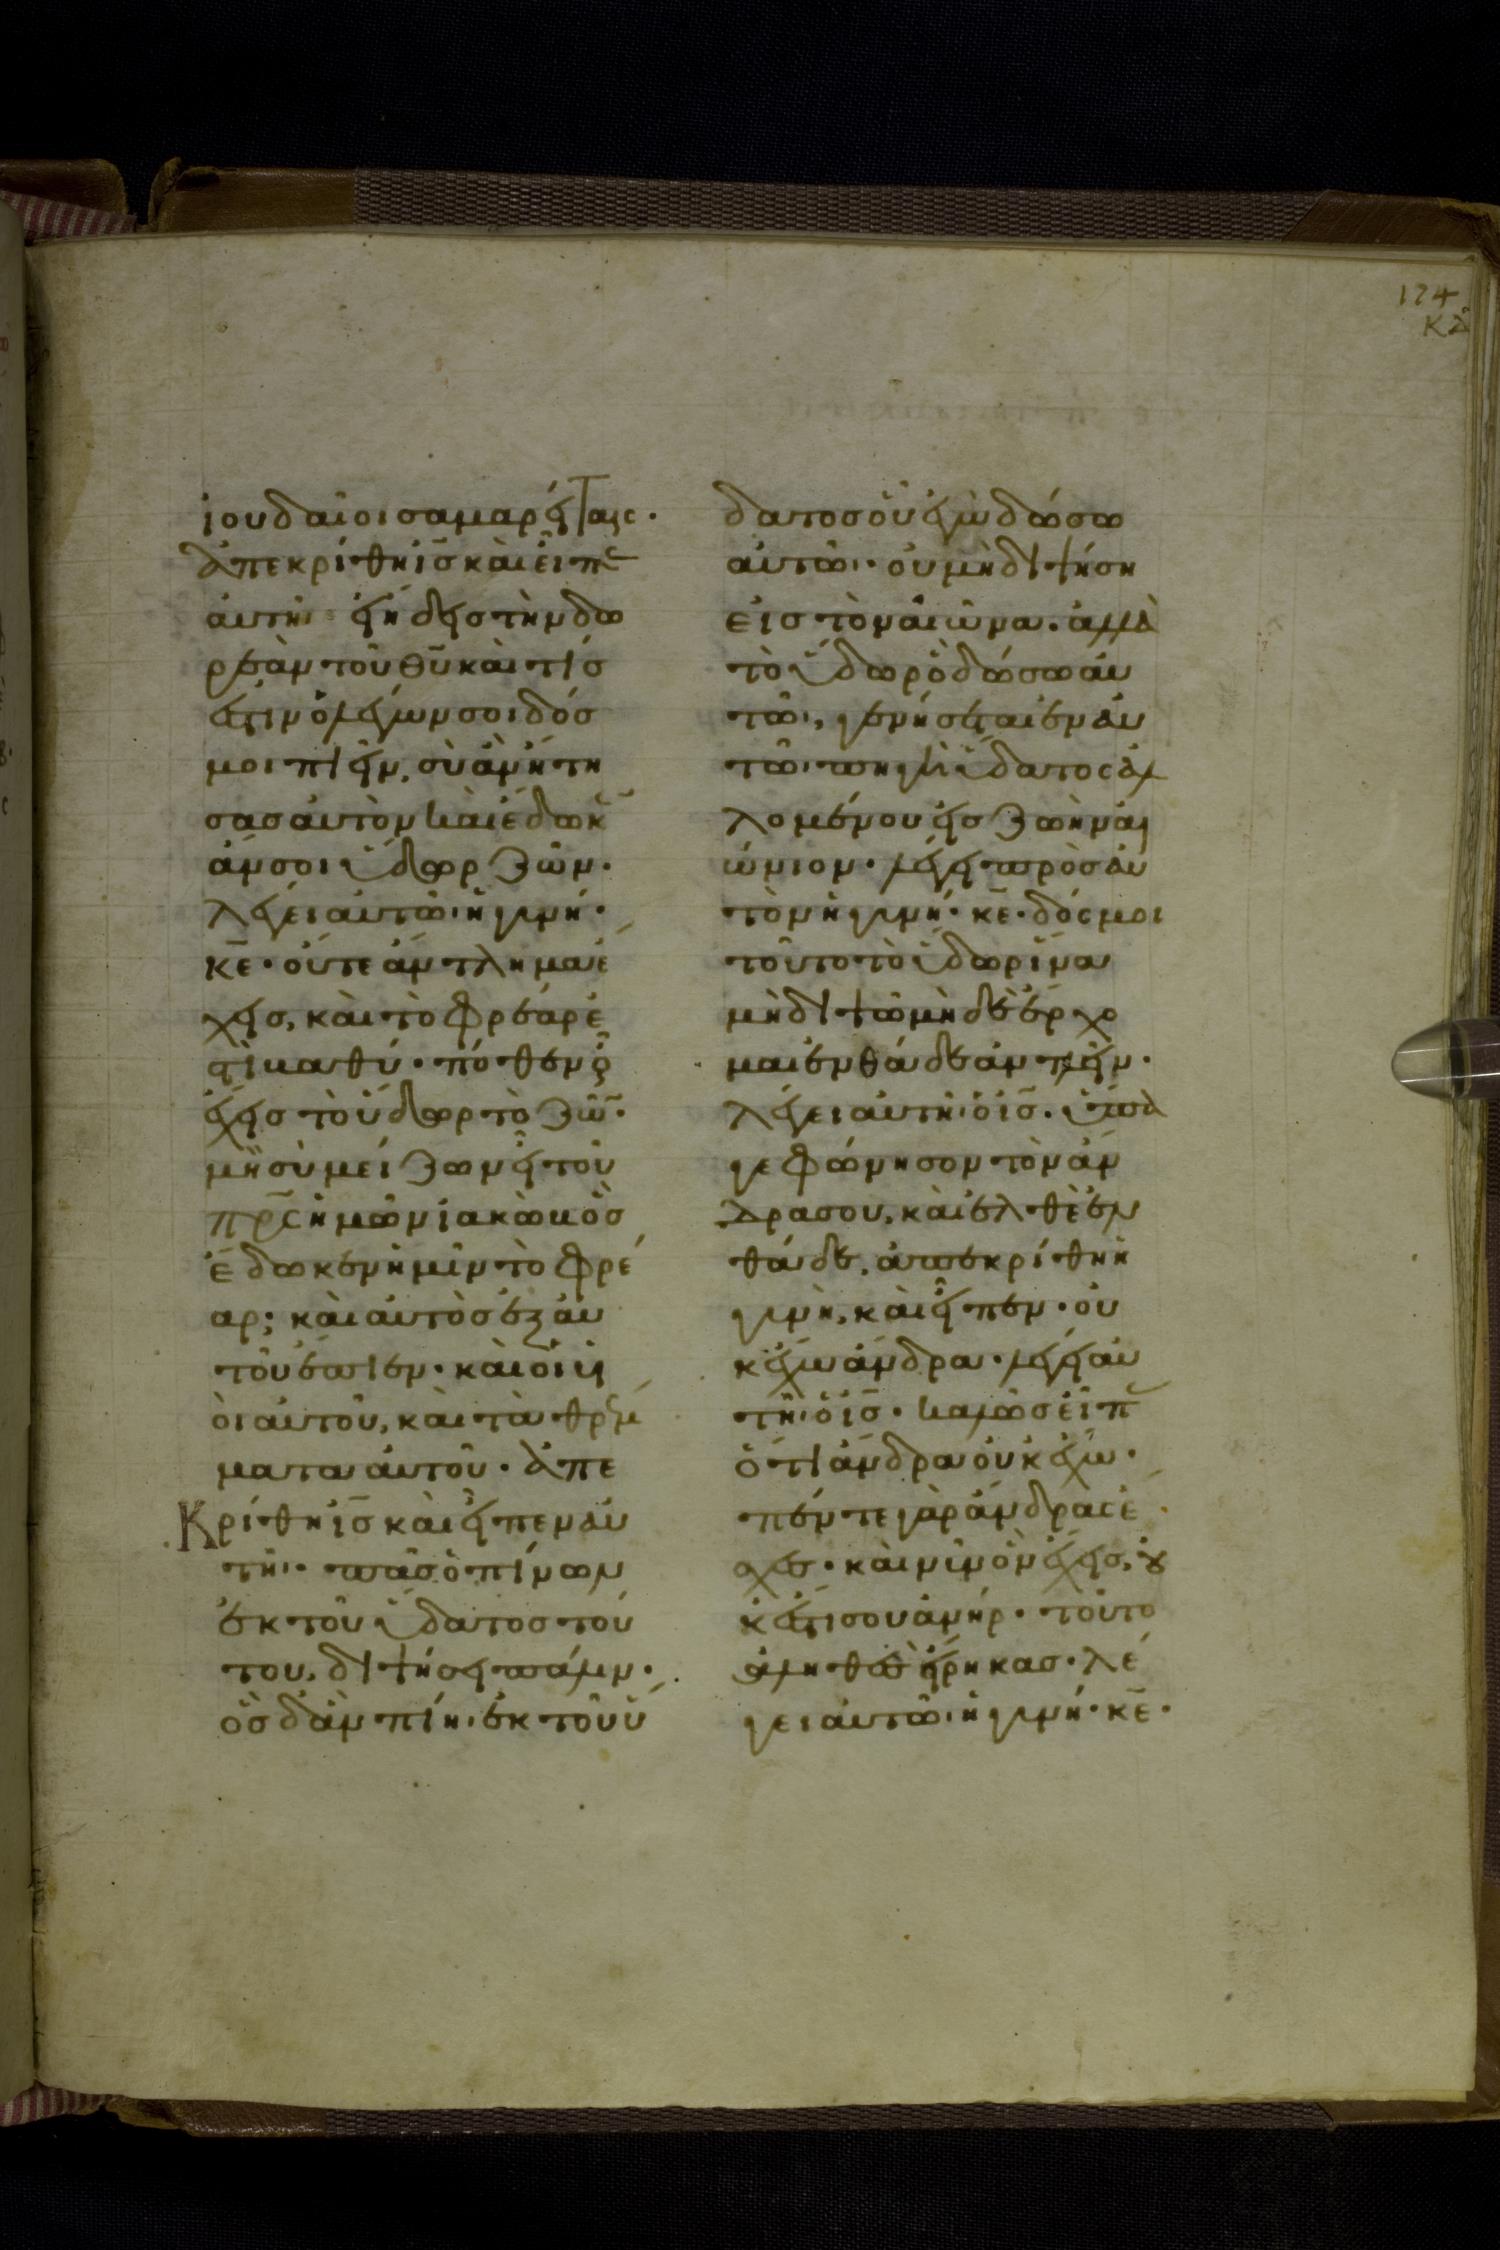 174
κδ
ἰουδαῖοι σαμαρείταις·
ἀπεκρίθη ἰς̅ καὶ εἶπεν
αὐτῆι εἰ ἤδεις τὴν δω
ρεὰν τοῦ θυ̅ καὶ τίς
ἐστιν ὁ λέγων σοι δός
μοι πιεῖν, σὺ ἂν ἤτη
σας αὐτὸν καὶ ἔδωκεν
ἄν σοι ὕδωρ ζῶν·
λέγει αὐτῶι ἡ γυνή·
κε̅· οὔτε ἄντλημα ἔ
χεις, καὶ τὸ φρέαρ ἐ
στὶ βαθύ· πόθεν οὖν
ἔχεις τὸ ὕδωρ τὸ ζῶν·
μὴ σὺ μείζων εἶ τοῦ
πρ̅ς ἡμῶν ἰακὼβ ὃς
ἔδωκεν ἡμῖν τὸ φρέ
αρ; καὶ αὐτὸς ἐξ αὐ
τοῦ ἔπιεν· καὶ οἱ υἱ
οὶ αὐτοῦ, καὶ τὰ θρέμ
ματα αὐτοῦ· ἀπε
Κρίθη ἰς̅ καὶ εἶπεν αὐ
τῆι· πᾶς ὁ πίνων
ἐκ τοῦ ὕδατος τού
του, διψήσει πάλιν·
ὃς δ' ἂν πίηι ἐκ τοῦ ὕ
δατος οὗ ἐγὼ δώσω
αὐτῶι· οὐ μὴ διψήση
εἰς τὸν αἰῶνα· ἀλλὰ
τὸ ὕδωρ ὃ δώσω αὐ
τῶι, γενήσεται ἐν αὐ
τῶι πηγὴ ὕδατος ἁλ
λομένου εἰς ζωὴν αἰ
ώνιον· λέγει πρὸς αὐ
τὸν ἡ γυνή· κε̅· δός μοι
τοῦτο τὸ ὕδωρ ἵνα
μὴ διψῶ μὴ δὲ ἔρχο
μαι ἐνθάδε ἀντλεῖν·
λέγει αὐτῆι ὁ ἰς̅· ὕπα
γε φώνησον τὸν ἄν
δρα σου, καὶ ἐλθὲ ἐν
θάδε, ἀπεκρίθη ἡ
γυνὴ, καὶ εἶπεν· οὐ
κ ἔχω ἄνδρα· λέγει αὐ
τῆι ὁ ἰς̅· καλῶς εἶπας
ὅτι ἄνδρα οὐκ ἔχω·
πέντε γὰρ ἄνδρας ἔ
σχες· καὶ νῦν ὃν ἔχεις, οὐ
κ ἔστι σου ἀνήρ· τοῦτο
ἀληθὲς εἴρηκας· λέ
γει αὐτῶι ἡ γυνή· κε̅·